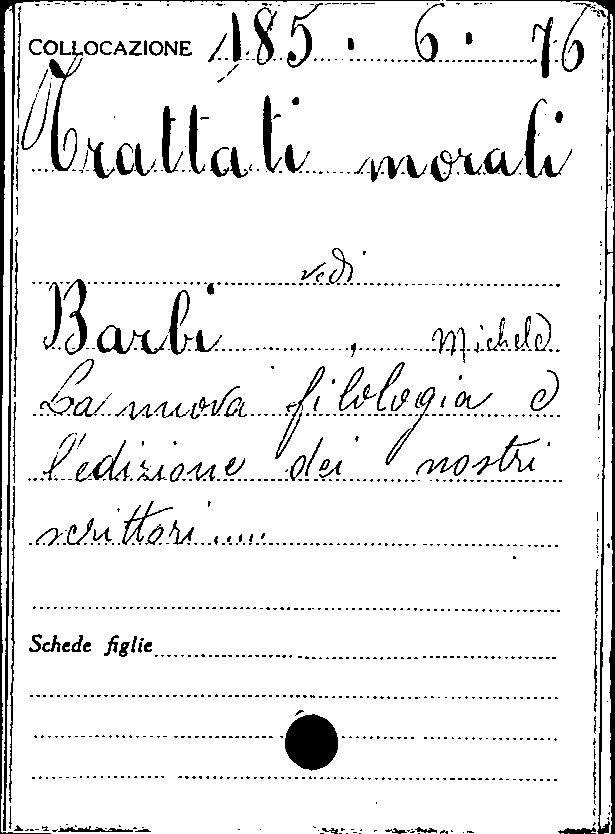 COLLOCAZIONE 185. 6. 76
Trattati morali
vedi
Barbi, Michele
La nuova filologia e
l'edizione dei nostri
scrittori.....
Schede figlie